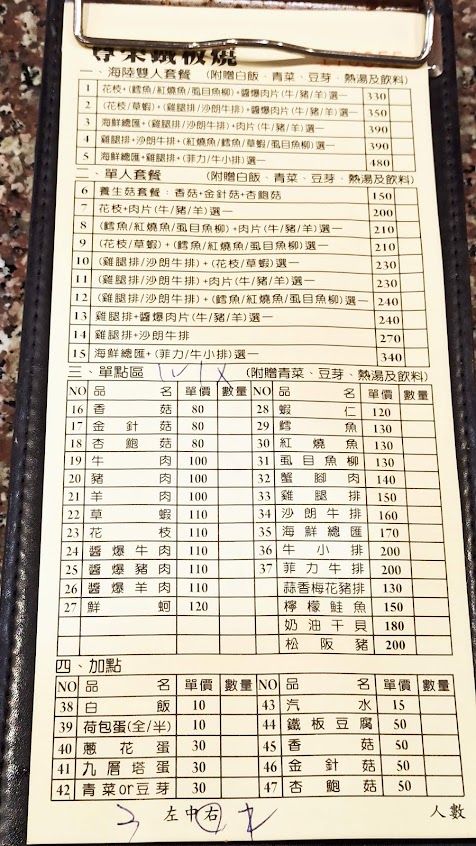 尊榮鐵板燒
一、海陸雙人套餐 (附贈白飯、青菜、豆芽、熱湯及飲料)
1 花枝+紅燒魚(紅燒魚/鱈魚/虱目魚)+醬爆肉片(牛/豬/羊)選一 330
2 (花枝/草蝦)+(雞腿排/沙朗牛排)+醬爆肉片(牛/豬/羊)選一 350
3 海鮮總匯+(雞腿排/沙朗牛排)+肉片(牛/豬/羊)選一 390
4 雞腿排+沙朗牛排+(紅燒魚/鱈魚/草蝦/虱目魚柳)選一 390
5 海鮮總匯+雞腿排+(菲力/牛小排)選一 480
二、單人套餐 (附贈白飯、青菜、豆芽、熱湯及飲料)
6 養生菇套餐:香菇+金針菇+杏鮑菇 150
7 花枝+肉片(牛/豬/羊)選一 200
8 (鱈魚/紅燒魚/虱目魚柳)+肉片(牛/豬/羊)選一 210
9 (花枝/草蝦)+(鱈魚/紅燒魚/虱目魚柳)選一 210
10 (雞腿排/沙朗牛排)+(花枝/草蝦)選一 230
11 (雞腿排/沙朗牛排)+肉片(牛/豬/羊)選一 230
12 (雞腿排/沙朗牛排)+(鱈魚/紅燒魚/虱目魚柳)選一 240
13 雞腿排+醬爆肉片(牛/豬/羊)選一 240
14 雞腿排+沙朗牛排 270
15 海鮮總匯+(菲力/牛小排)選一 340
三、單點區 (附贈青菜、豆芽、熱湯及飲料)
NO 品名 單價 數量 NO 品名 單價 數量
16 香菇 80 28 蝦仁 120
17 金針菇 80 29 鱈魚 130
18 杏鮑菇 80 30 紅燒魚 130
19 牛肉 100 31 虱目魚柳 130
20 豬肉 100 32 蟹腳肉 140
21 羊肉 100 33 雞腿排 150
22 草蝦 110 34 沙朗牛排 160
23 花枝 110 35 海鮮總匯 170
24 醬爆牛肉 110 36 牛小排 200
25 醬爆豬肉 110 37 菲力牛排 200
26 醬爆羊肉 110 蒜香梅花豬排 130
27 鮮蚵 120 檸檬鮭魚 150
奶油干貝 180
松阪豬 200
四、加點
NO 品名 單價 數量 NO 品名 單價 數量
38 白飯 10 43 汽水 15
39 荷包蛋(全/半) 10 44 鐵板豆腐 50
40 蔥花蛋 30 45 香菇 50
41 九層塔蛋 30 46 金針菇 50
42 青菜or豆芽 30 47 杏鮑菇 50
左中右 人數